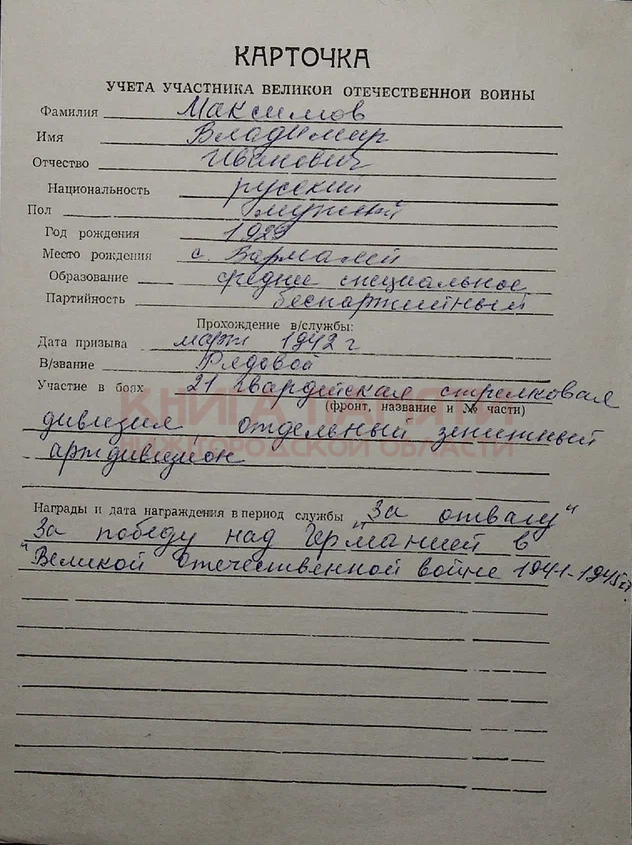 КАРТОЧКА
УЧЕТА УЧАСТНИКА ВЕЛИКОЙ ОТЕЧЕСТВЕННОЙ ВОЙНЫ
Фамилия Максимов
Имя Владимир
Отчество Иванович
Национальность русский
Пол мужской
Год рождения 1923
Место рождения с. Вармалей
Образование средне специальное
Партийность беспартийный
Прохождение в/службы:
Дата призыва март 1942 г
В/звание Рядовой
Участие в боях 21 гвардейская стрелковая
(фронт, название и № части)
КНИГА ПАМЯТИ
дивизия отдельный зенитный
НИЖЕГОРОДСКОЙ ОБЛАСТИ
артдивизион
Награды и дата награждения в период службы „За отвагу"
За победу над Германией в
"Великой отечественной войне 1941-1945гг